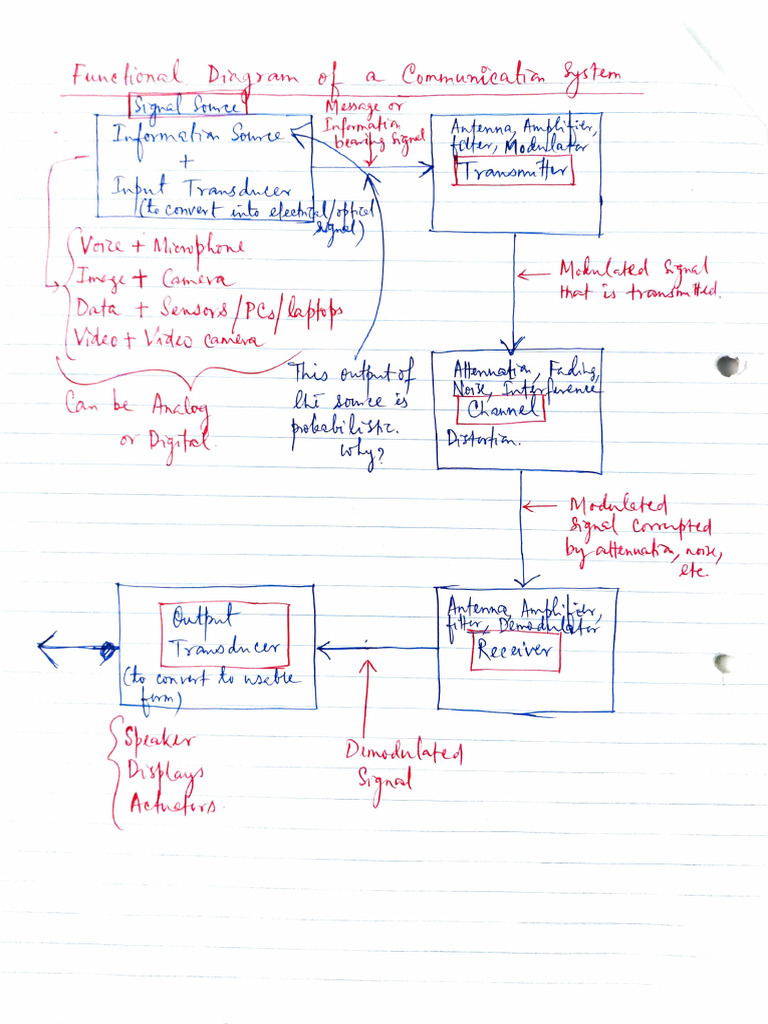 Functional Diagram of a Communication System
Signal Source
Information Source
+
Input Transducer
(to convert into electrical/optical
signal)
Message or
Information
bearing signal
Antenna, Amplifier,
filter, Modulator
Transmitter
Voice + Microphone
Image + Camera
Data + Sensors/PCs/laptops
Video + Video camera
Can be Analog
or Digital.
This output of
the source is
probabilistic.
Why?
Modulated signal
that is transmitted.
Attenuation, Fading,
Noise, Interference
Channel
Distortion.
Modulated
signal corrupted
by attenuation, noise,
etc.
Antenna, Amplifier,
filter, Demodulator
Receiver
Demodulated
Signal
Output
Transducer
(to convert to usable
form)
Speaker
Displays
Actuators.